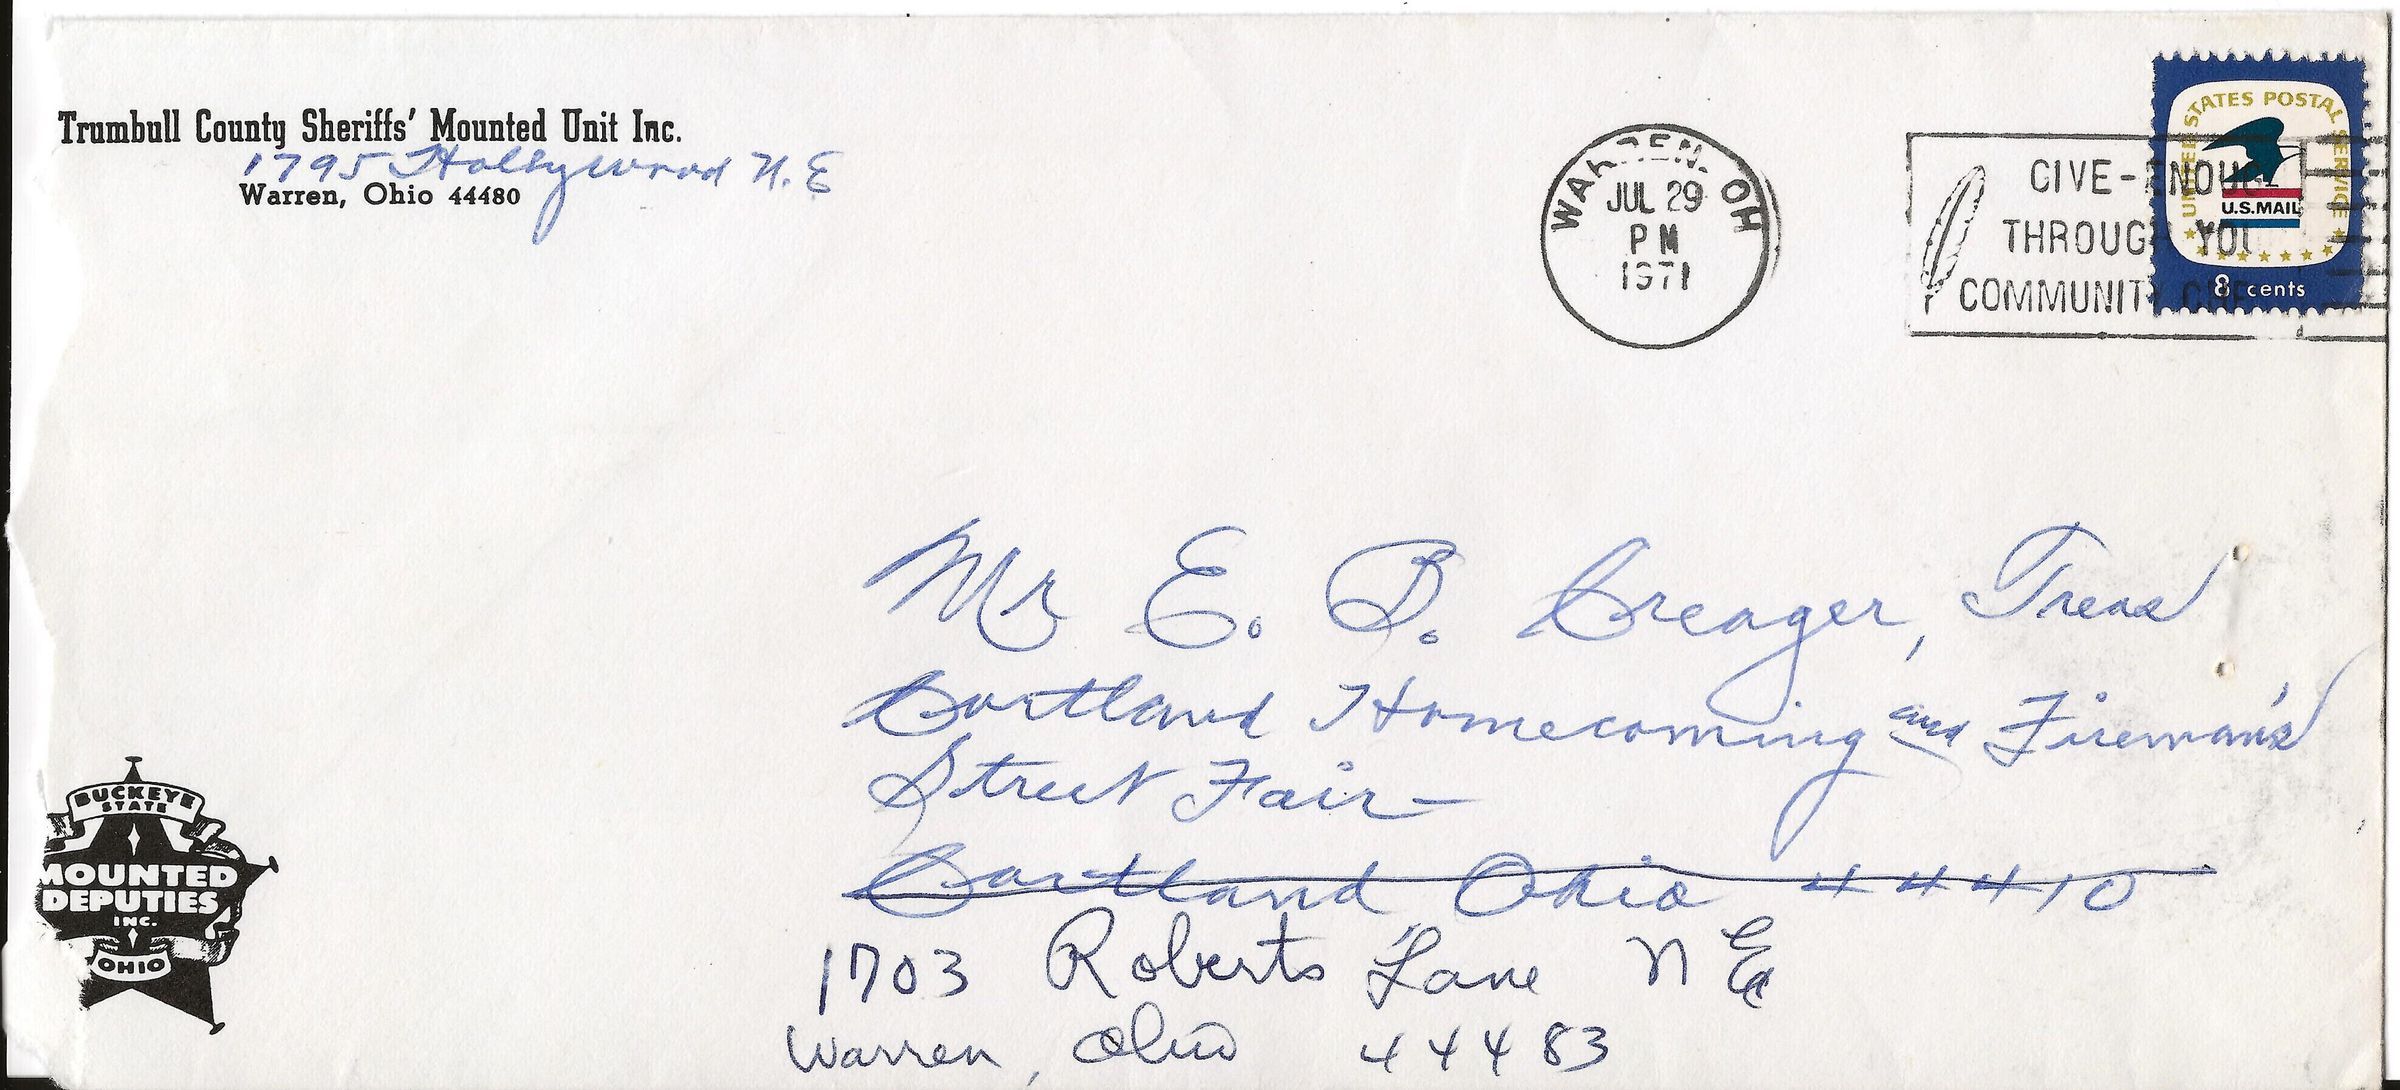 Trumbull County Sheriffs' Mounted Unit Inc.
1795 Hollywood N.E
Warren, Ohio 44480
WARREN. OH
JUL 29
PM
1971
GIVE-ENOUGH
THROUGH YOU
COMMUNITY CHE
UNITED STATES POSTAL SERVICE
U.S.MAIL
8 cents
Mr E. B. Creager, Treas
Cortland Homecoming and Fireman's
Street Fair-
Cortland Ohio 44410
1703 Roberts Lane N E
Warren, Ohio 44483
BUCKEYE
STATE
MOUNTED
DEPUTIES
INC.
OHIO